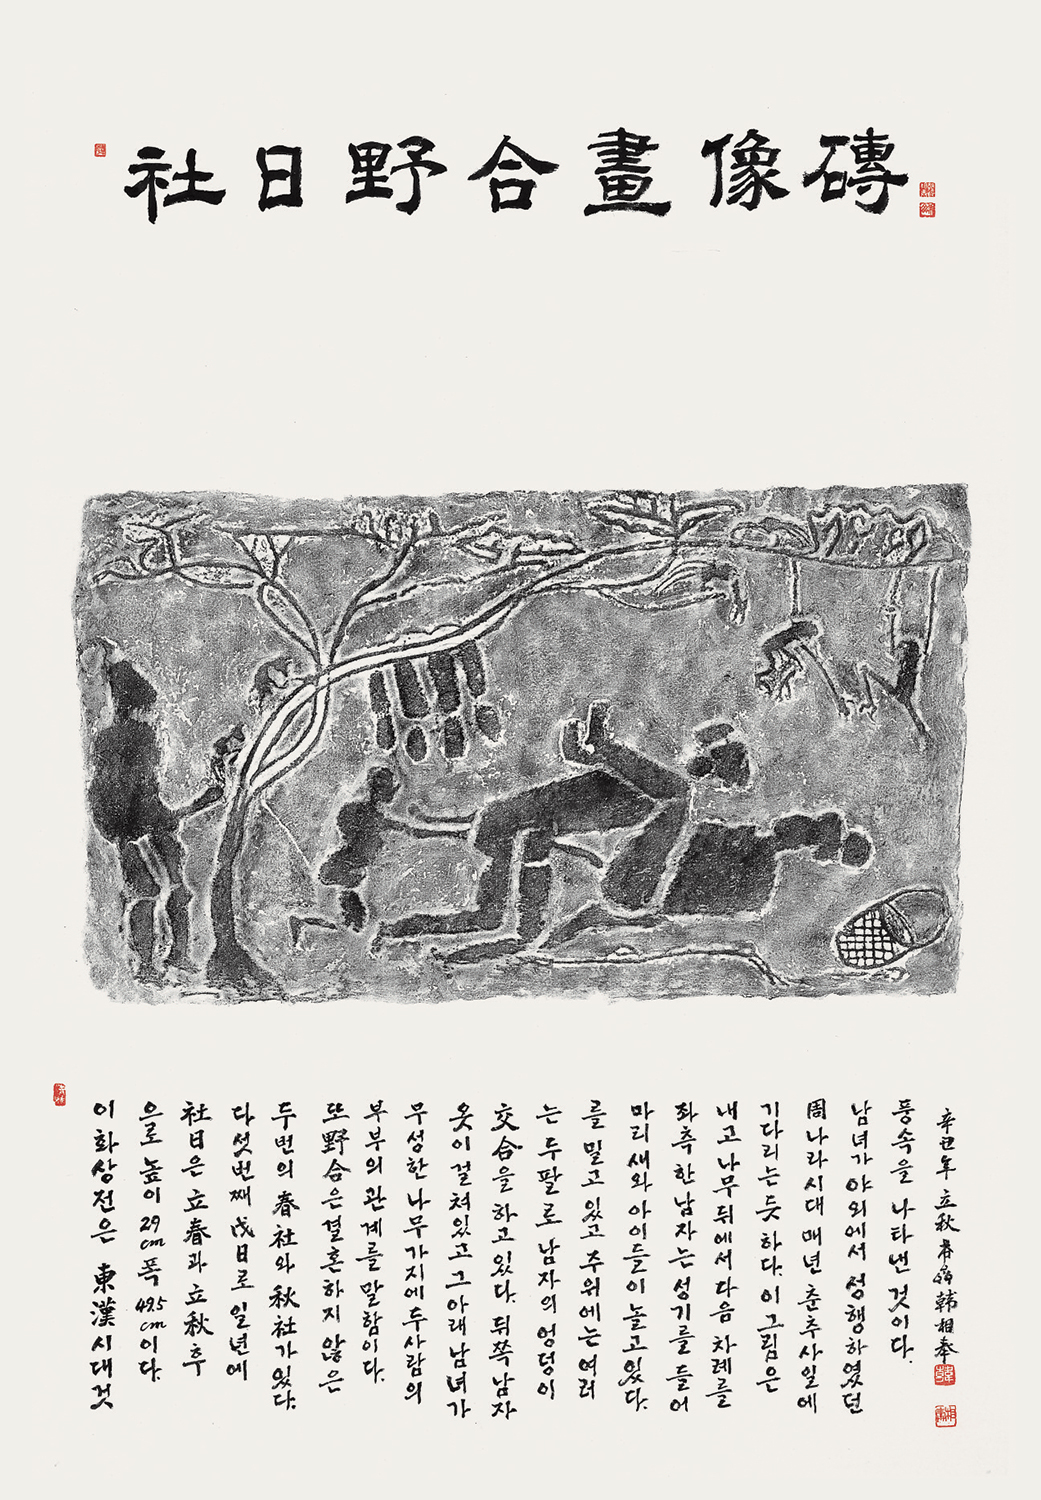 社日野合畫像磚
이 화상전은 東漢시대 것
으로 높이 29cm 폭 49.5cm이다.
社日은 立春과 立秋후
다섯번째 戊日로 일년에
두번의 春社와 秋社가 있다.
또 野合은 결혼하지 않은
부부의 관계를 말함이다.
무성한 나무가지에 두사람의
옷이 걸쳐있고 그 아래 남녀가
交合을 하고 있다. 뒤쪽 남자
는 두팔로 남자의 엉덩이
를 밀고 있고 주위에는 여러
마리 새와 아이들이 놀고있다.
좌측 한 남자는 성기를 들어
내고 나무뒤에서 다음 차례를
기다리는듯하다. 이 그림은
周나라시대 매년 춘추사일에
남녀가 야외에서 성행하였던
풍속을 나타낸 것이다.
辛丑年 立秋 韓相奉